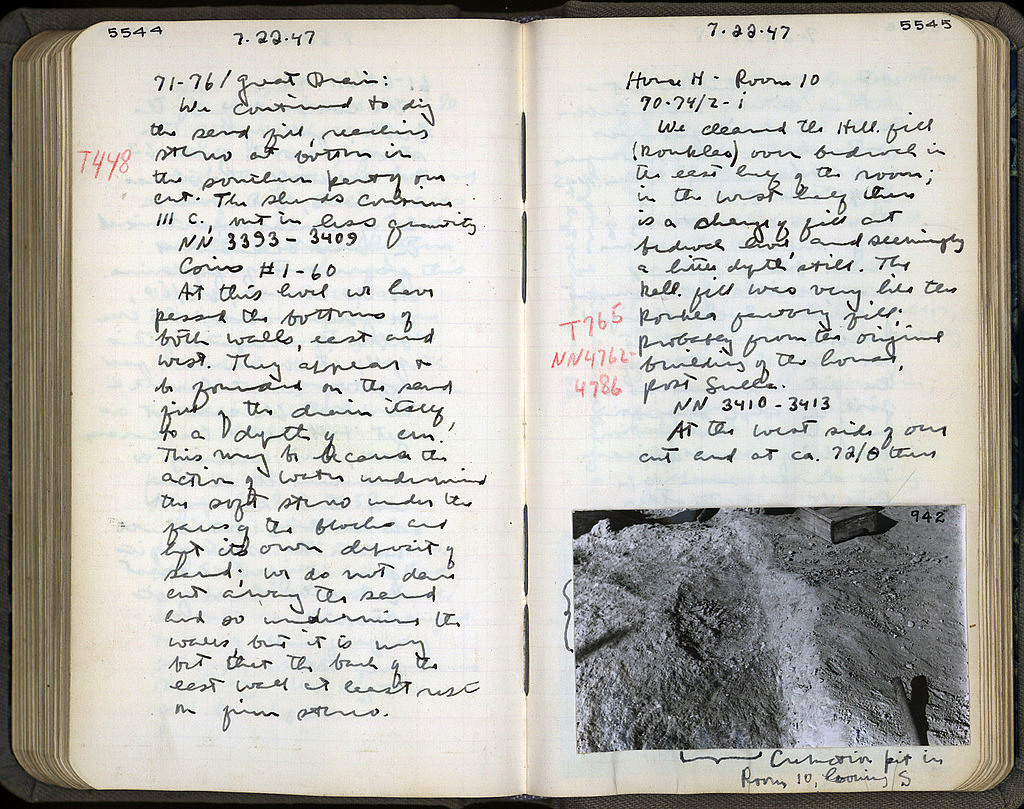 5544
7·22·47
71-76/ Great Drain:
We continued to dig
the sand fill, reaching
stereo at bottom in
T448
the southern part of our
cut. The sherds continue
III C., but in less quantity
NN 3393 - 3409
Coins #1-60
At this level we have
passed the bottoms of
both walls, east and
west. They appear to
be founded on the sand
fill of the drain itself,
to a depth of cm.
This may be because the
action of water undermined
the soft stereo under the
faces of the blocks and
left its own deposit of
sand; we do not dare
cut away the sand
and so undermine the
walls, but it is my
bet that the back of the
east wall at least rests
on firm stereo.
5545
7·22·47
House H - Room 10
70-74/Z-I
We cleaned the Hell. fill
over bedrock in
the east half of the room;
in the west half there
is a change of fill at
bedrock level and seemingly
a little depth still. The
Hell. fill was very like the
T765
factory fill.
NN4762-
Probably from the original
4786
building of the house,
post Sulla.
NN 3410 - 3413
At the west side of our
cut and at ca. 72/Θ there
942
Cremation pit in
Room 10, looking S